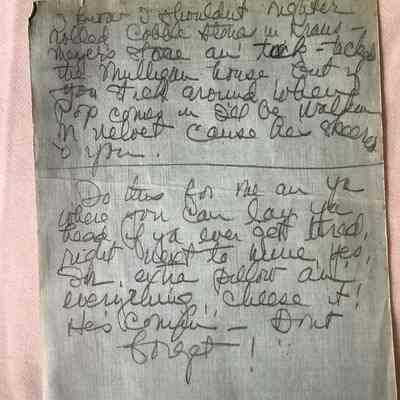 I know I shouldn't righter
rolled Cobble Stones in Kraus-
meyers Stove an' tick-tacked
the Mulligan house but if
you stick around when
Pop comes in I'll be walkin
'n velvet cause he's skeered
o you.
Do this for me an ya
where you can lay ya
head if ya ever gett tired,
right next to mine. Yes,
Sir, extra pillow an'
everything. Cheese it!
He's Comin' - Dont
forget!